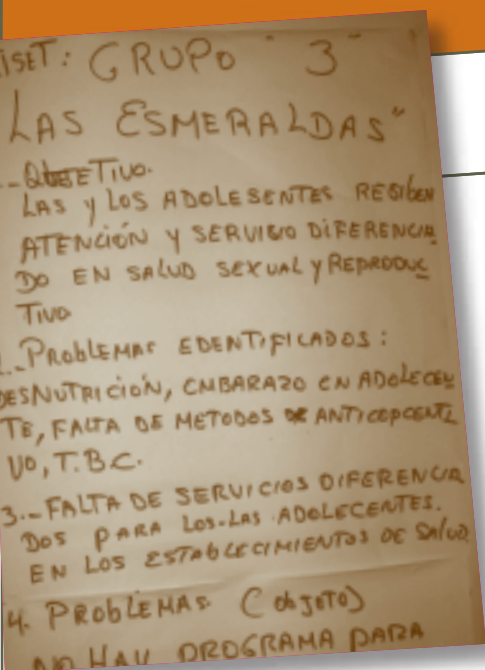 ISET: GRUPO "3"
LAS ESMERALDAS"
.-OBJETIVO.
LAS y LOS ADOLESENTES RESIBEN
ATENCIÓN Y SERVICIO DIFERENCIA
DO EN SALUD SEXUAL y REPRODUC
TIVO
.-PROBLEMAS EDENTIFICADOS:
DESNUTRICIÓN, EMBARAZO EN ADOLECEN
TE, FALTA DE METODOS DE ANTICOPCENTI
VO, T.B.C.
3.-FALTA DE SERVICIOS DIFERENCIA
DOS PARA LOS-LAS ADOLECENTES.
EN LOS ESTABLECIMIENTOS DE SALUD
4. PROBLEMAS (ObJETO)
NO HAY PROGRAMA PARA